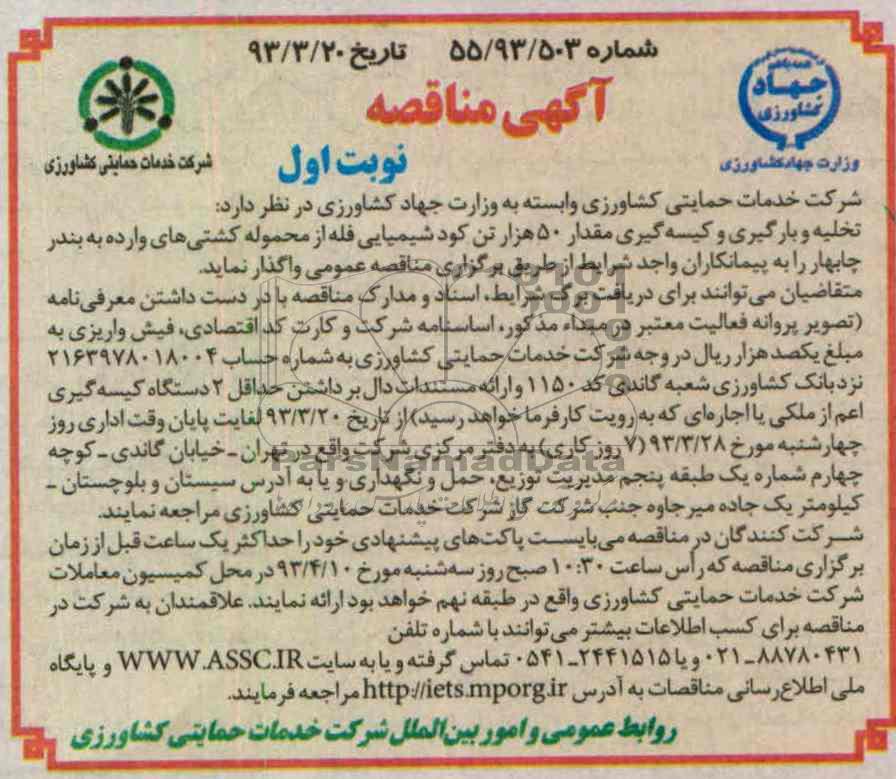 شماره ۵۵/۹۳/۵۰۳ تاریخ ۹۳/۳/۲۰
آگهی مناقصه
نوبت اول
جهاد
کشاورزی
وزارت جهادکشاورزی
شرکت خدمات حمایتی کشاورزی
شرکت خدمات حمایتی کشاورزی وابسته به وزارت جهاد کشاورزی در نظر دارد:
تخلیه و بارگیری و کیسه‌گیری مقدار ۵۰ هزار تن کود شیمیایی فله از محموله کشتی‌های وارده به بندر
چابهار را به پیمانکاران واجد شرایط از طریق برگزاری مناقصه عمومی واگذار نماید.
متقاضیان می‌توانند برای دریافت برگ شرایط، اسناد و مدارک مناقصه با در دست داشتن معرفی‌نامه
(تصویر پروانه فعالیت معتبر در مبداء مذکور، اساسنامه شرکت و کارت کد اقتصادی، فیش واریزی به
مبلغ یکصد هزار ریال در وجه شرکت خدمات حمایتی کشاورزی به شماره حساب ۲۱۶۳۹۷۸۰۱۸۰۰۴
نزد بانک کشاورزی شعبه گاندی کد ۱۱۵۰ و ارائه مستندات دال بر داشتن حداقل ۲ دستگاه کیسه‌گیری
اعم از ملکی یا اجاره‌ای که به رویت کارفرما خواهد رسید) از تاریخ ۹۳/۳/۲۰ لغایت پایان وقت اداری روز
چهارشنبه مورخ ۹۳/۳/۲۸ (۷ روز کاری) به دفتر مرکزی شرکت واقع در تهران ـ خیابان گاندی ـ کوچه
چهارم شماره یک طبقه پنجم مدیریت توزیع، حمل و نگهداری و یا به آدرس سیستان و بلوچستان ـ
کیلومتر یک جاده میرجاوه جنب شرکت گاز شرکت خدمات حمایتی کشاورزی مراجعه نمایند.
شرکت کنندگان در مناقصه می‌بایست پاکت‌های پیشنهادی خود را حداکثر یک ساعت قبل از زمان
برگزاری مناقصه که رأس ساعت ۱۰:۳۰ صبح روز سه‌شنبه مورخ ۹۳/۴/۱۰ در محل کمیسیون معاملات
شرکت خدمات حمایتی کشاورزی واقع در طبقه نهم خواهد بود ارائه نمایند. علاقمندان به شرکت در
مناقصه برای کسب اطلاعات بیشتر می‌توانند با شماره تلفن
۰۲۱-۸۸۷۸۰۴۳۱ و یا ۰۵۴۱-۲۴۴۱۵۱۵ تماس گرفته و یا به سایت WWW.ASSC.IR و پایگاه
ملی اطلاع‌رسانی مناقصات به آدرس http://iets.mporg.ir مراجعه فرمایند.
روابط عمومی و امور بین‌الملل شرکت خدمات حمایتی کشاورزی
ParsNamadData